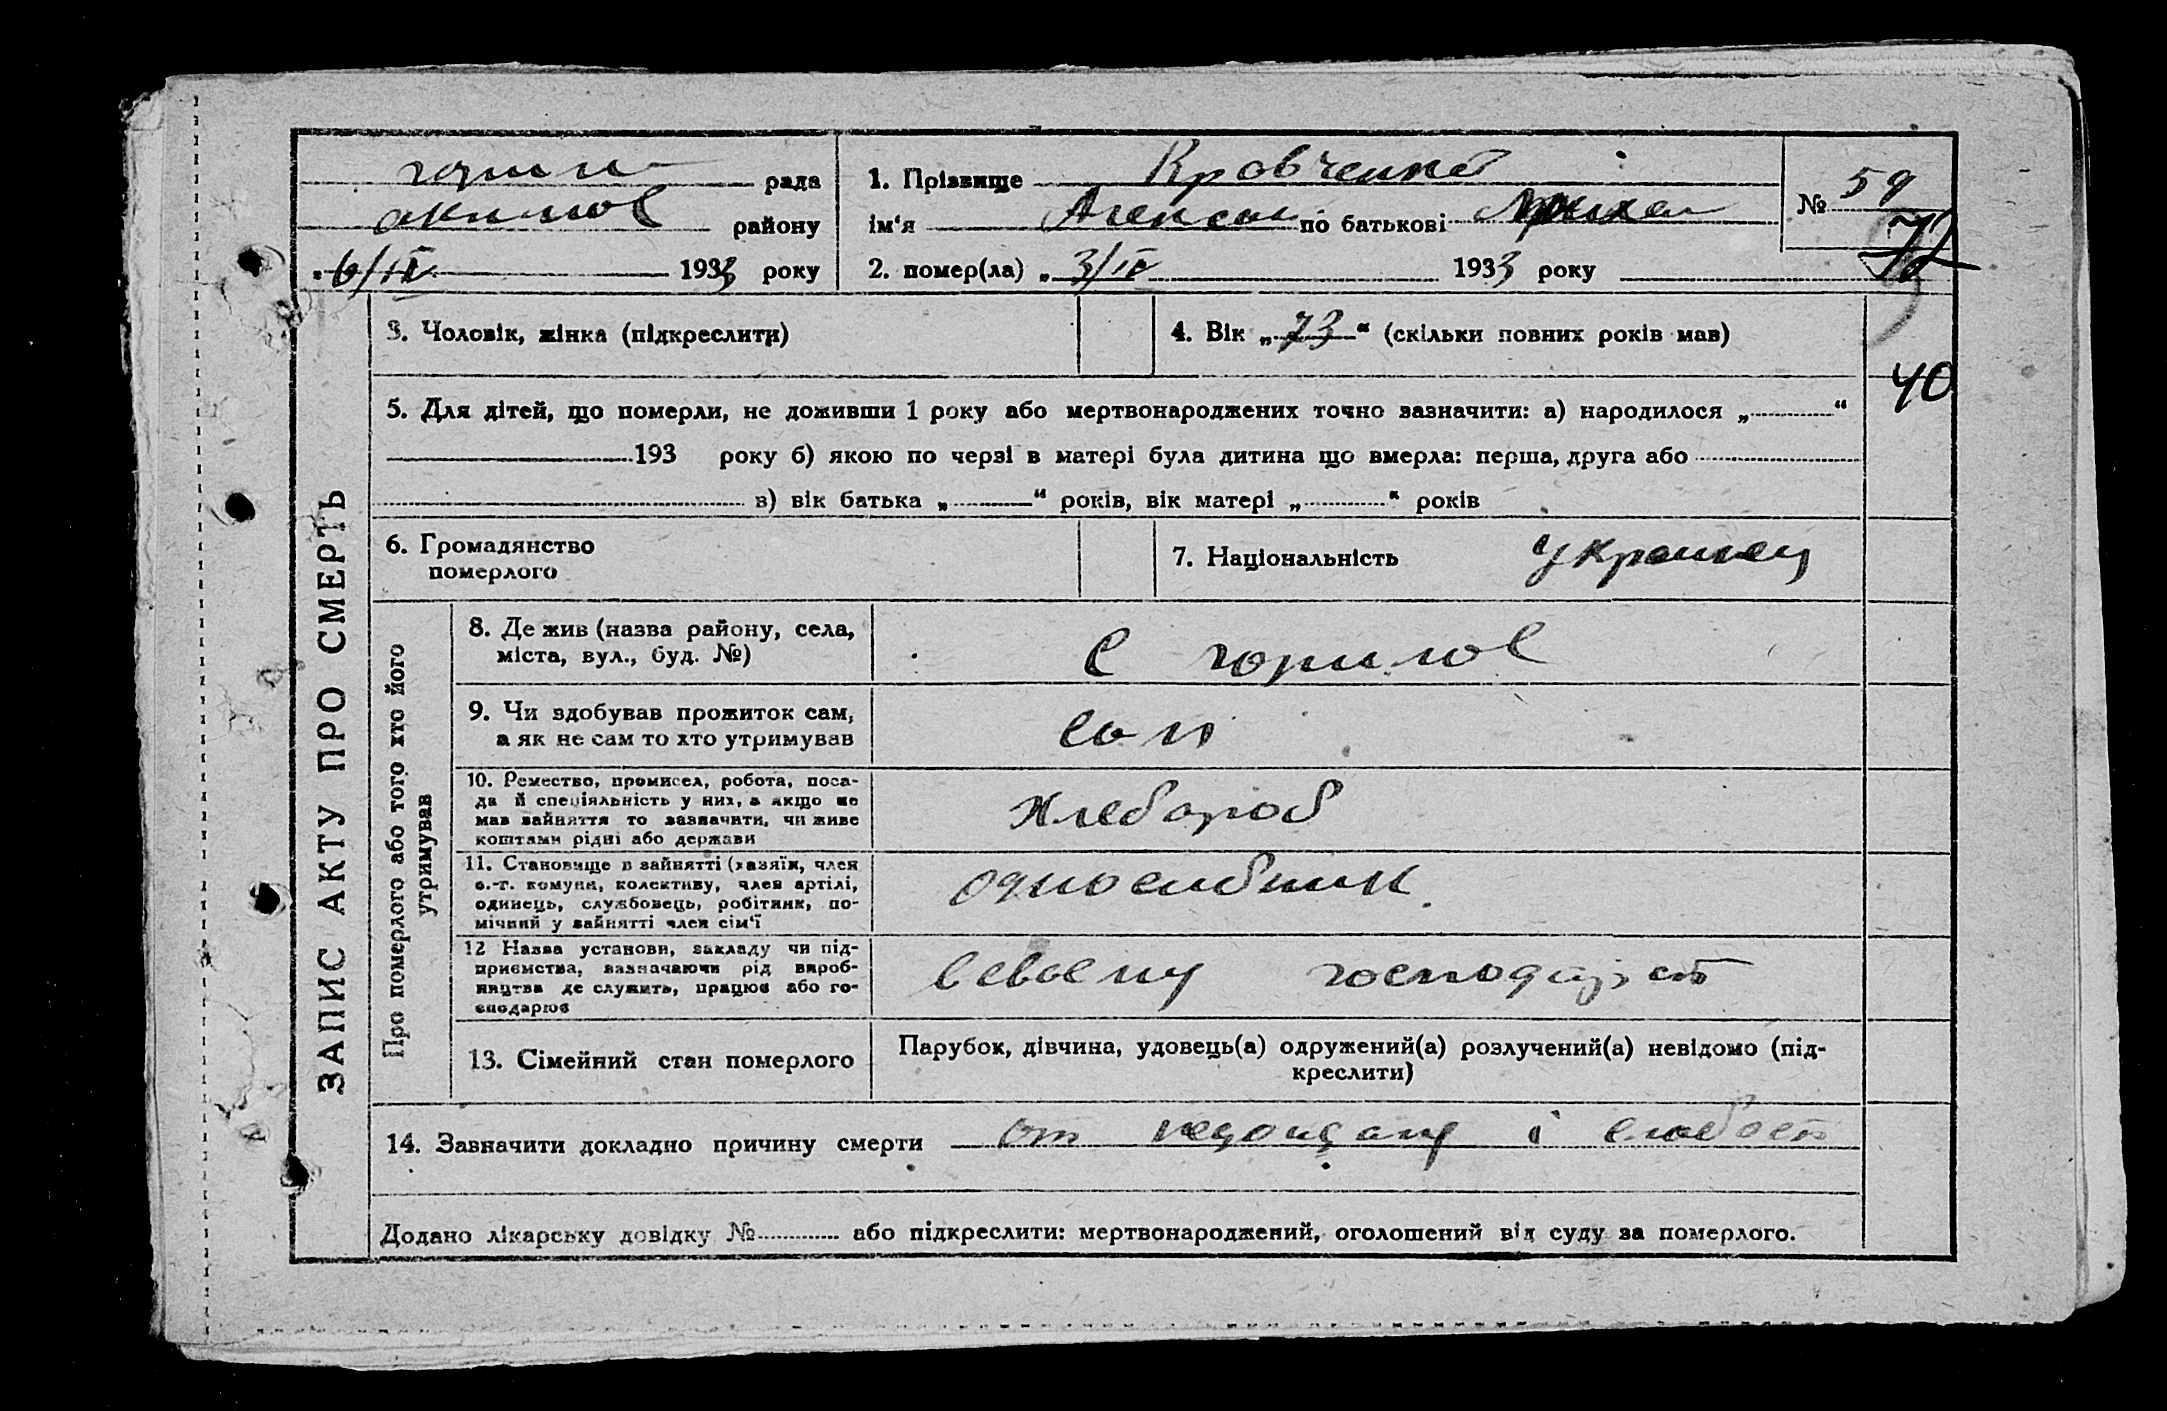 рада
району
6/IV 1933 року
1. Прізвище Кровченко
ім'я Алексы по батькові
2. помер(ла) „ 3/IV 1933 року
№ 59
72
ЗАПИС АКТУ ПРО СМЕРТЬ
3. Чоловік, жінка (підкреслити)
4. Вік „ 73 “ (скільки повних років мав)
40
5. Для дітей, що померли, не доживши 1 року або мертвонароджених точно зазначити: а) народилося „ “
193 року б) якою по черзі в матері була дитина що вмерла: перша, друга або
в) вік батька „ “ років, вік матері „ “ років
6. Громадянство
померлого
7. Національність Украинец
Про померлого або того хто його
утримував
8. Де жив (назва району, села,
міста, вул., буд. №)
с
9. Чи здобував прожиток сам,
а як не сам то хто утримував
сам
10. Ремество, промисел, робота, поса-
да й спеціяльність у них, а якщо не
мав зайняття то зазначити, чи живе
коштами рідні або держави
хлебороб
11. Становище в зайнятті (хазяїн, член
с.-г. комуни, колективу, член артілі,
одинець, службовець, робітник, по-
мічний у зайнятті член сім'ї
12 Назва установи, закладу чи під-
приємства, зазначаючи рід вироб-
ництва де служить, працює або го-
сподарює
в своему господарст
13. Сімейний стан померлого
Парубок, дівчина, удовець(а) одружений(а) розлучений(а) невідомо (під-
креслити)
14. Зазначити докладно причину смерти от недоиданя і слабост
Додано лікарську довідку № або підкреслити: мертвонароджений, оголошений від суду за померлого.